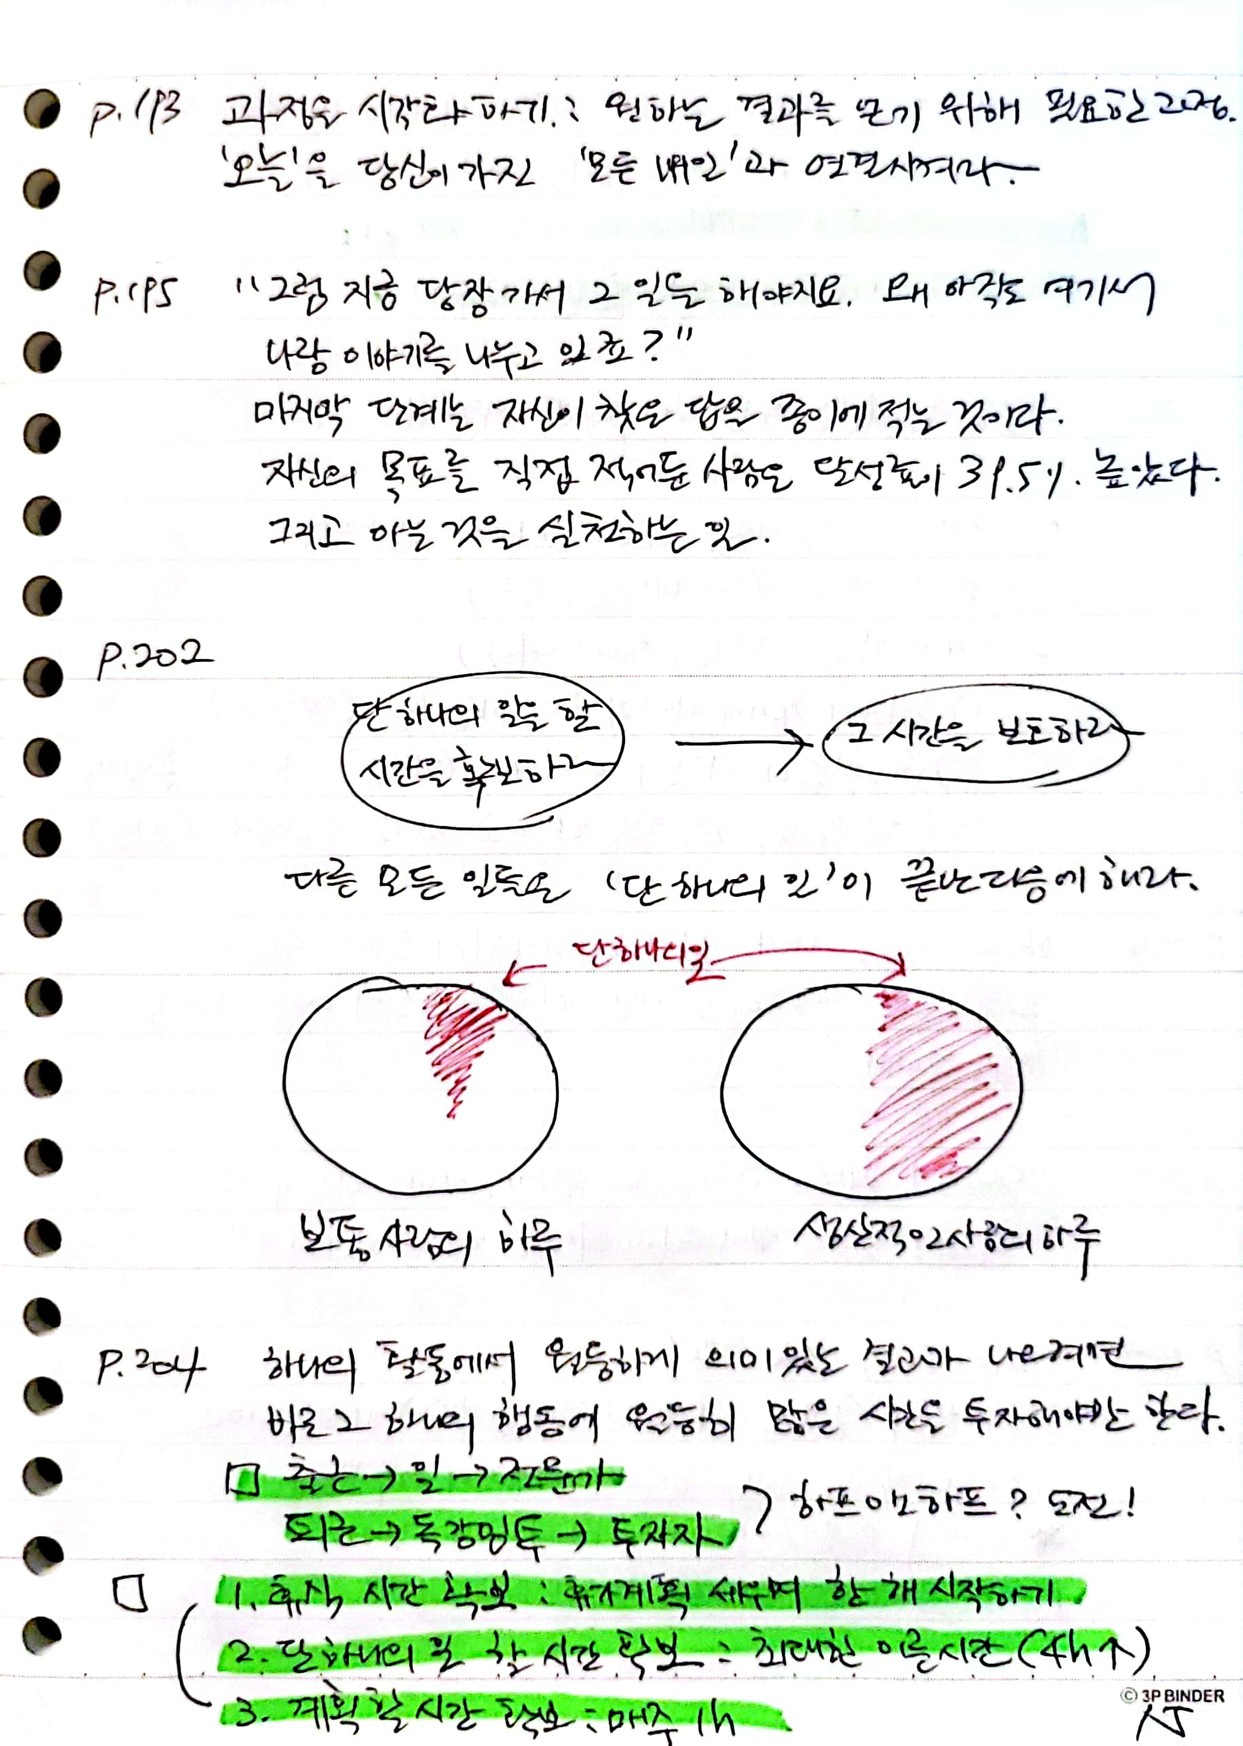 p.193 과정을 시각화하기 : 원하는 결과를 얻기 위해 필요한 과정.
'오늘'을 당신이 가진 '모든 내일'과 연결시켜라.
p.195 "그럼 지금 당장 가서 그 일을 해야지요. 왜 아직도 여기서
나랑 이야기를 나누고 있죠?"
마지막 단계는 자신이 찾은 답을 종이에 적는 것이다.
자신의 목표를 직접 적어둔 사람은 달성률이 39.5%. 높았다.
그리고 아는 것을 실천하는 일.
P.202
단 하나의 일을 할
시간을 확보하라
그 시간을 보호하라
다른 모든 일들은 '단 하나의 일'이 끝난 다음에 해라.
단 하나의 일
보통 사람의 하루
생산적인 사람의 하루
P.204 하나의 활동에서 월등하게 의미있는 결과가 나오려면
바로 그 하나의 행동에 월등히 많은 시간을 투자해야만 한다.
출근 → 일 → 전문가
퇴근 → 독강임투 → 투자자
하프 앤 하프? 도전!
1. 휴식 시간 확보 : 휴가계획 세우며 한 해 시작하기
2. 단 하나의 일 할 시간 확보 : 최대한 이른 시간 (4h↑)
3. 계획할 시간 확보 : 매주 1h
© 3P BINDER